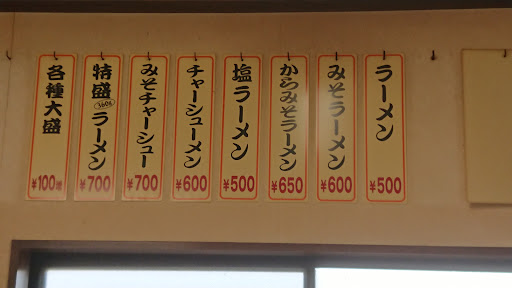 ラーメン
¥500
みそラーメン
¥600
からみそラーメン
¥650
塩ラーメン
¥500
チャーシューメン
¥600
みそチャーシュー
¥700
特盛
ラーメン
¥700
各種大盛
¥100増